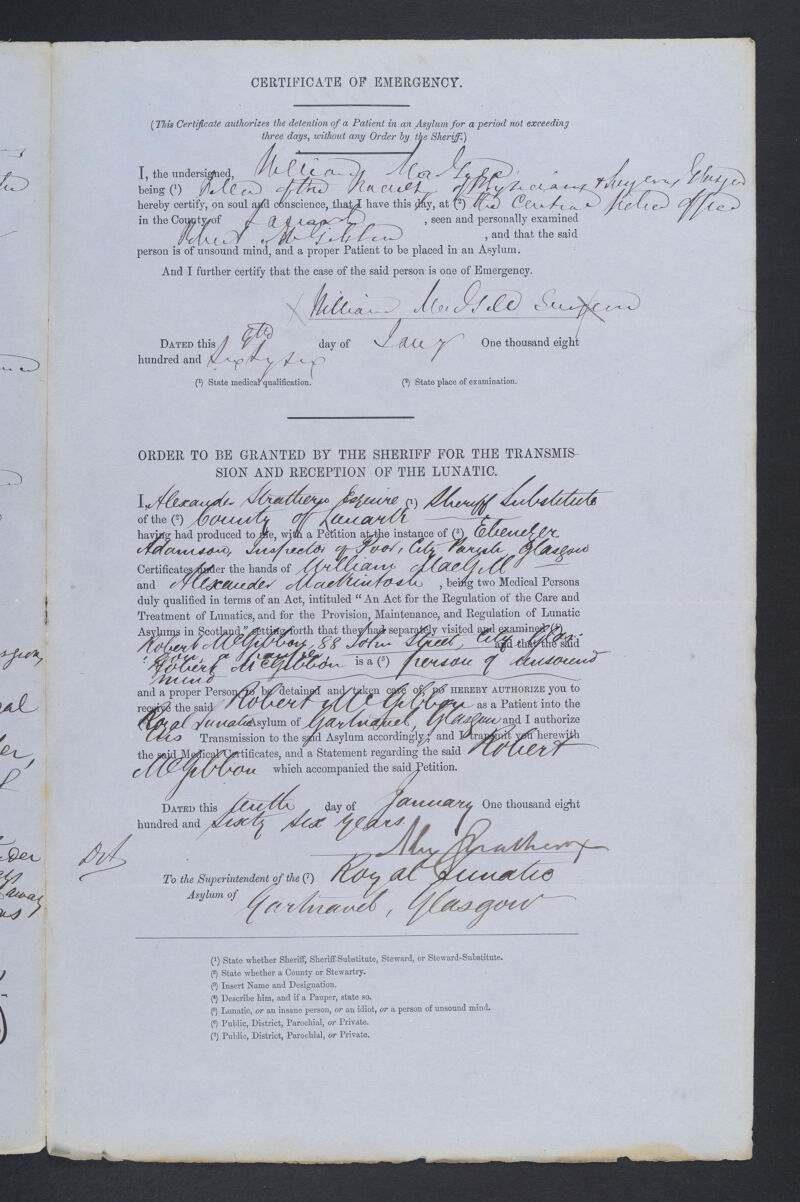 CERTIFICATE OF EMERGENCY.
(This Certificate authorizes the detention of a Patient in an Asylum for a period not exceeding
three days, without any Order by the Sheriff.)
I, the undersigned, William
being (¹) of the of Physicians & Surgeons Glasgow
hereby certify, on soul and conscience, that I have this day, at (²) the Central Police Office
in the County of Lanark , seen and personally examined
Robert McGibbon , and that the said
person is of unsound mind, and a proper Patient to be placed in an Asylum.
And I further certify that the case of the said person is one of Emergency.
William Surgeon
DATED this 9th day of Jany One thousand eight
hundred and sixty six
(¹) State medical qualification. (²) State place of examination.
ORDER TO BE GRANTED BY THE SHERIFF FOR THE TRANSMIS-
SION AND RECEPTION OF THE LUNATIC.
I, Alexander Strathern Esquire (¹) Sheriff Substitute
of the (²) County of Lanark
having had produced to me, with a Petition at the instance of (³) Ebenezer
Adamson, Inspector of Poor, City Parish, Glasgow
Certificates under the hands of William
and Alexander Mackintosh , being two Medical Persons
duly qualified in terms of an Act, intituled "An Act for the Regulation of the Care and
Treatment of Lunatics, and for the Provision, Maintenance, and Regulation of Lunatic
Asylums in Scotland," setting forth that they had separately visited and examined (⁴)
Robert McGibbon, 88 John Street, City, Glas-
gow, a pauper and that the said
Robert McGibbon is a (⁵) person of unsound
mind
and a proper Person to be detained and taken care of, DO HEREBY AUTHORIZE you to
receive the said Robert McGibbon as a Patient into the
Royal Lunatic Asylum of Gartnavel, Glasgow and I authorize
his Transmission to the said Asylum accordingly; and I transmit you herewith
the said Medical Certificates, and a Statement regarding the said Robert
McGibbon which accompanied the said Petition.
DATED this tenth day of January One thousand eight
hundred and sixty six years
Alex Strathern
To the Superintendent of the (⁷) Royal Lunatic
Asylum of
Gartnavel, Glasgow
(¹) State whether Sheriff, Sheriff-Substitute, Steward, or Steward-Substitute.
(²) State whether a County or Stewartry.
(³) Insert Name and Designation.
(⁴) Describe him, and if a Pauper, state so.
(⁵) Lunatic, or an insane person, or an idiot, or a person of unsound mind.
(⁶) Public, District, Parochial, or Private.
(⁷) Public, District, Parochial, or Private.